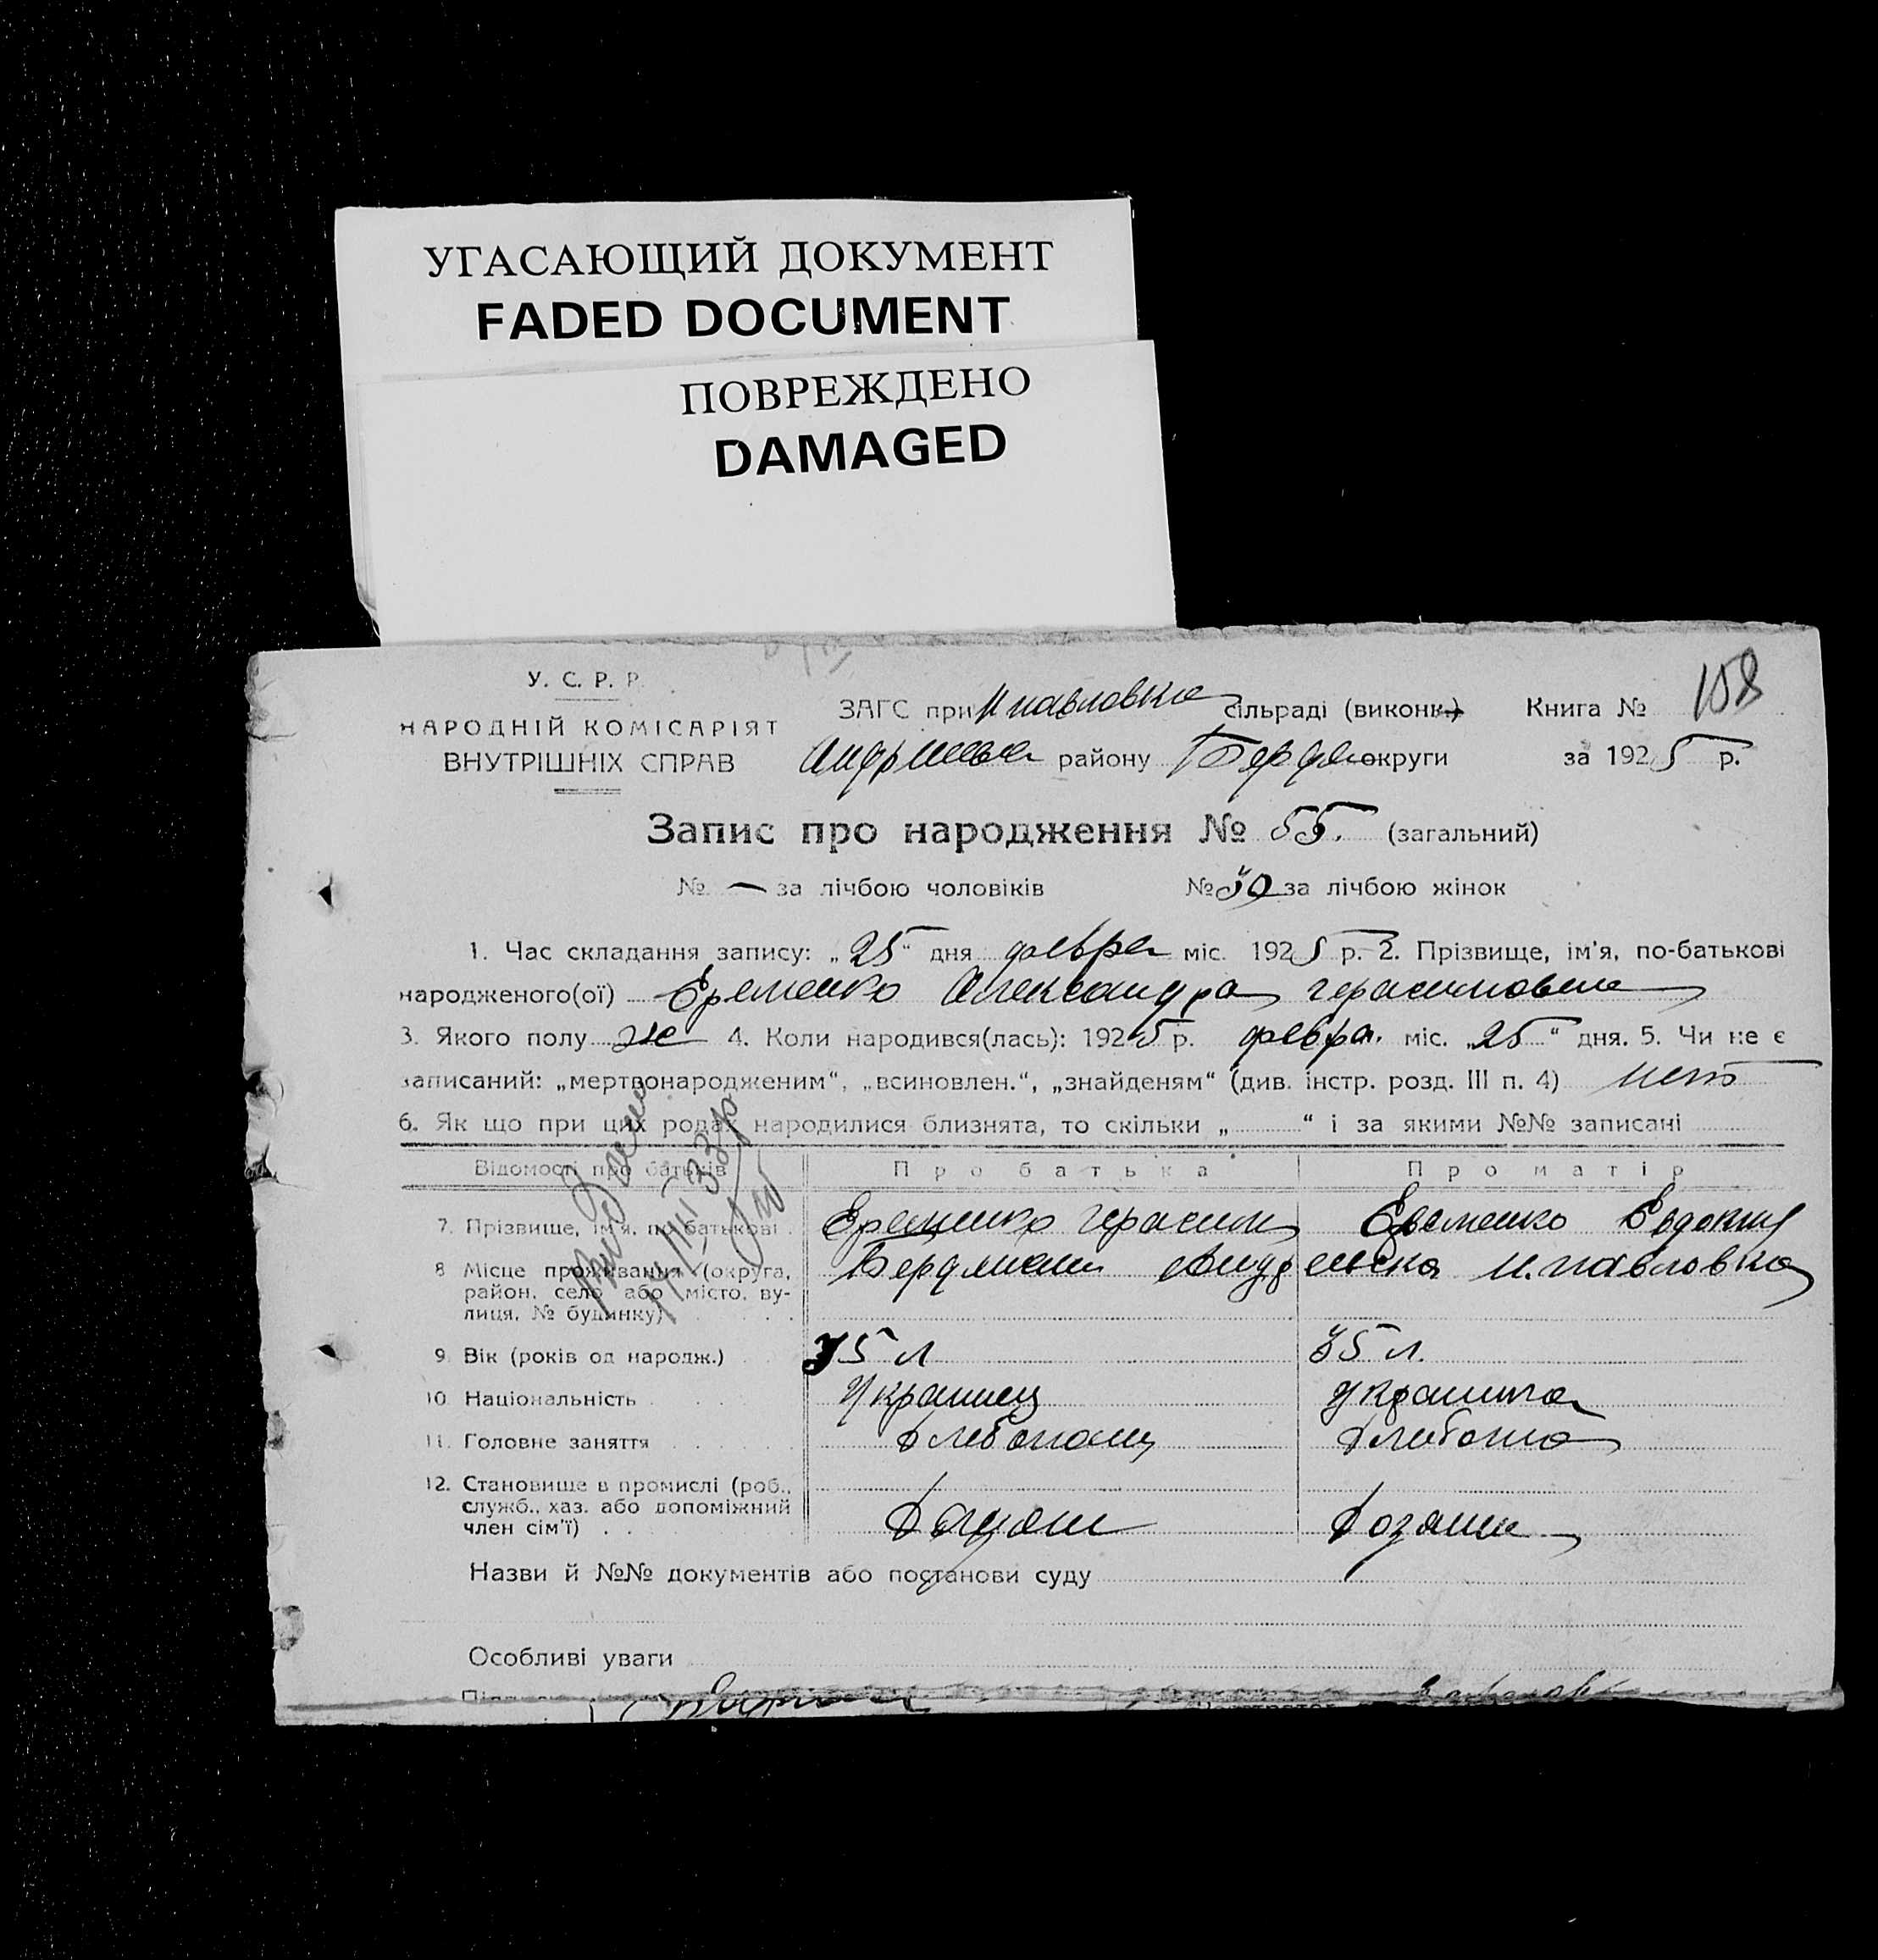 УГАСАЮЩИЙ ДОКУМЕНТ
FADED DOCUMENT
ПОВРЕЖДЕНО
DAMAGED
У. С. Р. Р.
НАРОДНІЙ КОМІСАРІЯТ
ВНУТРІШНІХ СПРАВ
ЗАГС при Н павловка сільраді (виконк.) Книга №
108
района Бердян округи за 1925 р.
Запис про народження № 55. (загальний)
№ — за лічбою чоловіків № 30 за лічбою жінок
1. Час складання запису: „25“ дня февра міс. 1925 р. 2. Прізвище, ім'я, по-батькові
народженого(ої) Еременко Александра Герасимовна
3. Якого полу ж 4. Коли народився(лась): 1925 р. февра. міс. „25“ дня. 5. Чи не є
записаний: „мертвонародженим“, „всиновлен.“, „знайденям“ (див. інстр. розд. III п. 4) нет
6. Як що при цих родах народилися близнята, то скільки „ “ і за якими №№ записані
Відомості про батьків Про батька Про матір
7. Прізвище, ім'я, по батькові Еременко Герасим Еременко Евдокия
8 Місце проживання (округа, район, село або місто, вулиця, № будинку) Н. павловка
9. Вік (років од народж.) 35 л 35 л.
10. Національність Украинец Украинка
11. Головне заняття Хлебопашец
12. Становище в промислі (роб., служб., хаз. або допоміжний член сім'ї) Хозяин
Назви й №№ документів або постанови суду
Особливі уваги